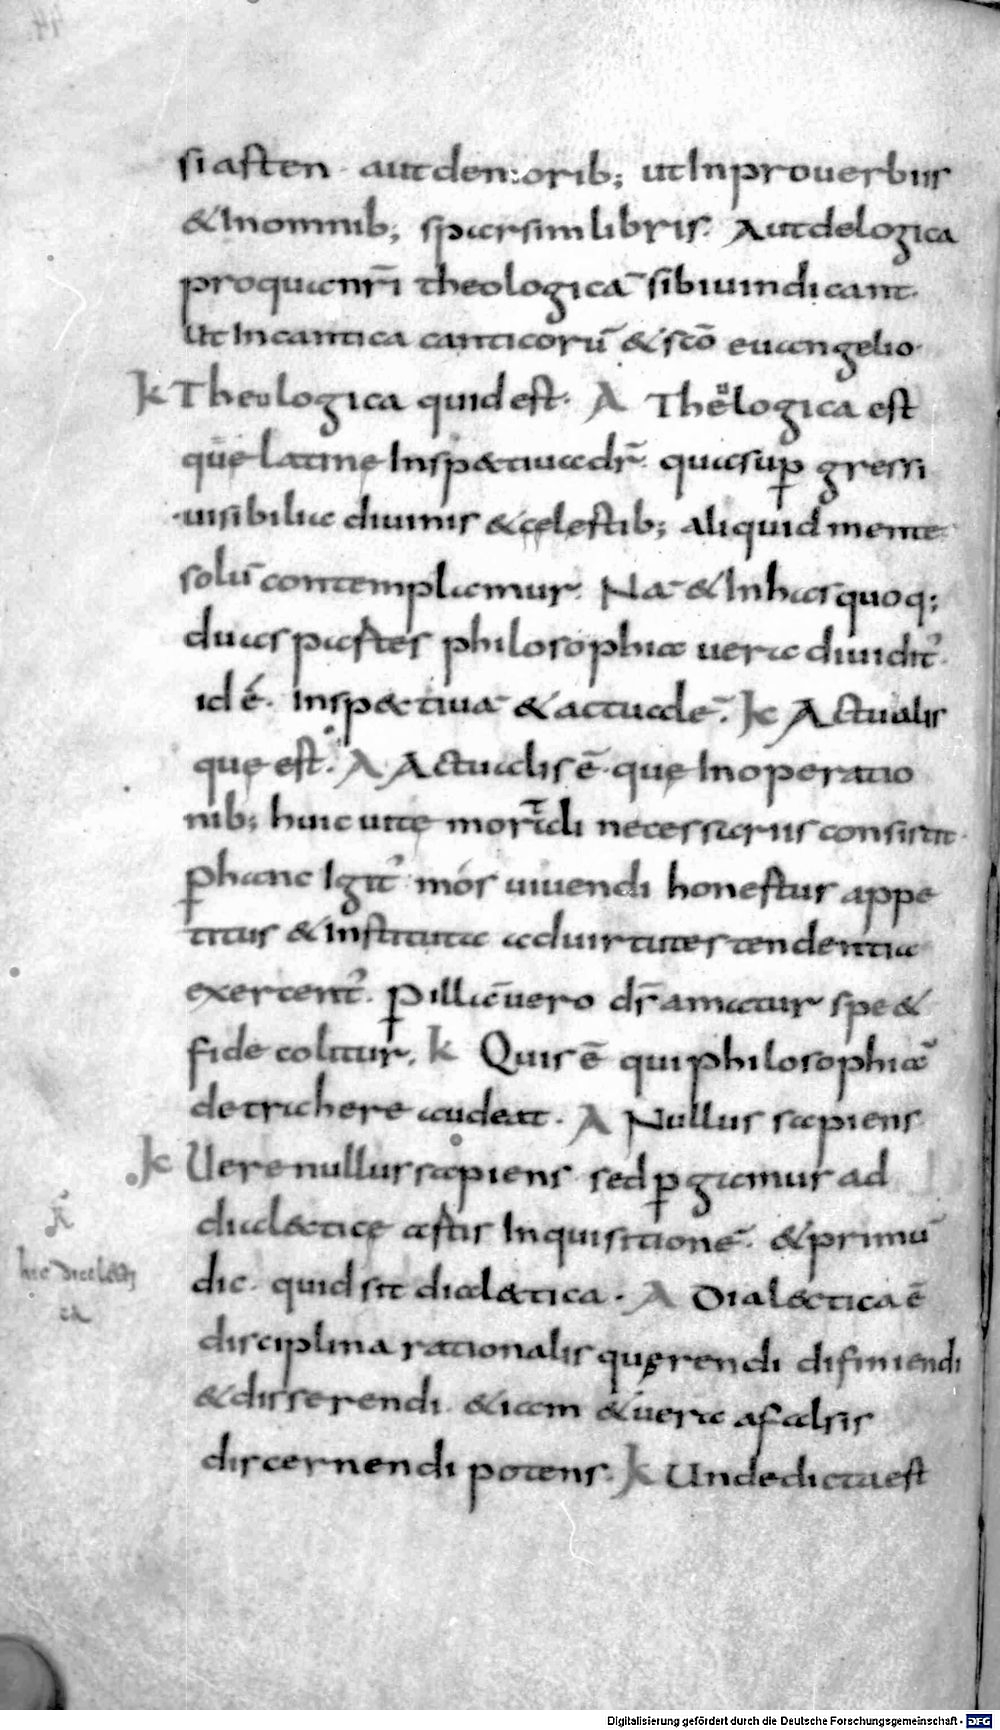 siasten · aut den:orib; ut In prouerbiis
& In omnib; sparsim libris. Aut de logica
pro qua nr̄i theologicā sibi uindicant·
ut In cantica canticorū & sc̄o euangelio·
K Theologica quid est· A Theologica est
quę latine Inspectiua dr̄. qua sup gressi
uisibilia diuinis & cęlestib; aliquid mente
solū contemplamur. Nā & In has quoq;
duas partes philosophia uera diuidit᷒·
id ē· Inspectiuā & actualē. K Actualis
quę est. A Actualis ē quę In operatio
nib; huic uitę mortali necessariis consistit·
p hanc Igit᷒ mos uiuendi honestus appe
titus & Instituta ad uirtutes tendentia
exercent᷒. p illā uero dr̄ amatur spe &
fide colitur. K Quis ē qui philosophiā
detrahere audeat. A Nullus sapiens
K Uere nullus sapiens sed pgamus ad
dialecticę artis Inquisitionē. & primū
dic· quid sit dialectica. A Dialectica ē
disciplina rationalis quęrendi difiniendi
& disserendi· & iam & uera a falsis
discernendi potens. K Unde dicta est
hic dialecti
ca
Digitalisierung gefördert durch die Deutsche Forschungsgemeinschaft - DFG